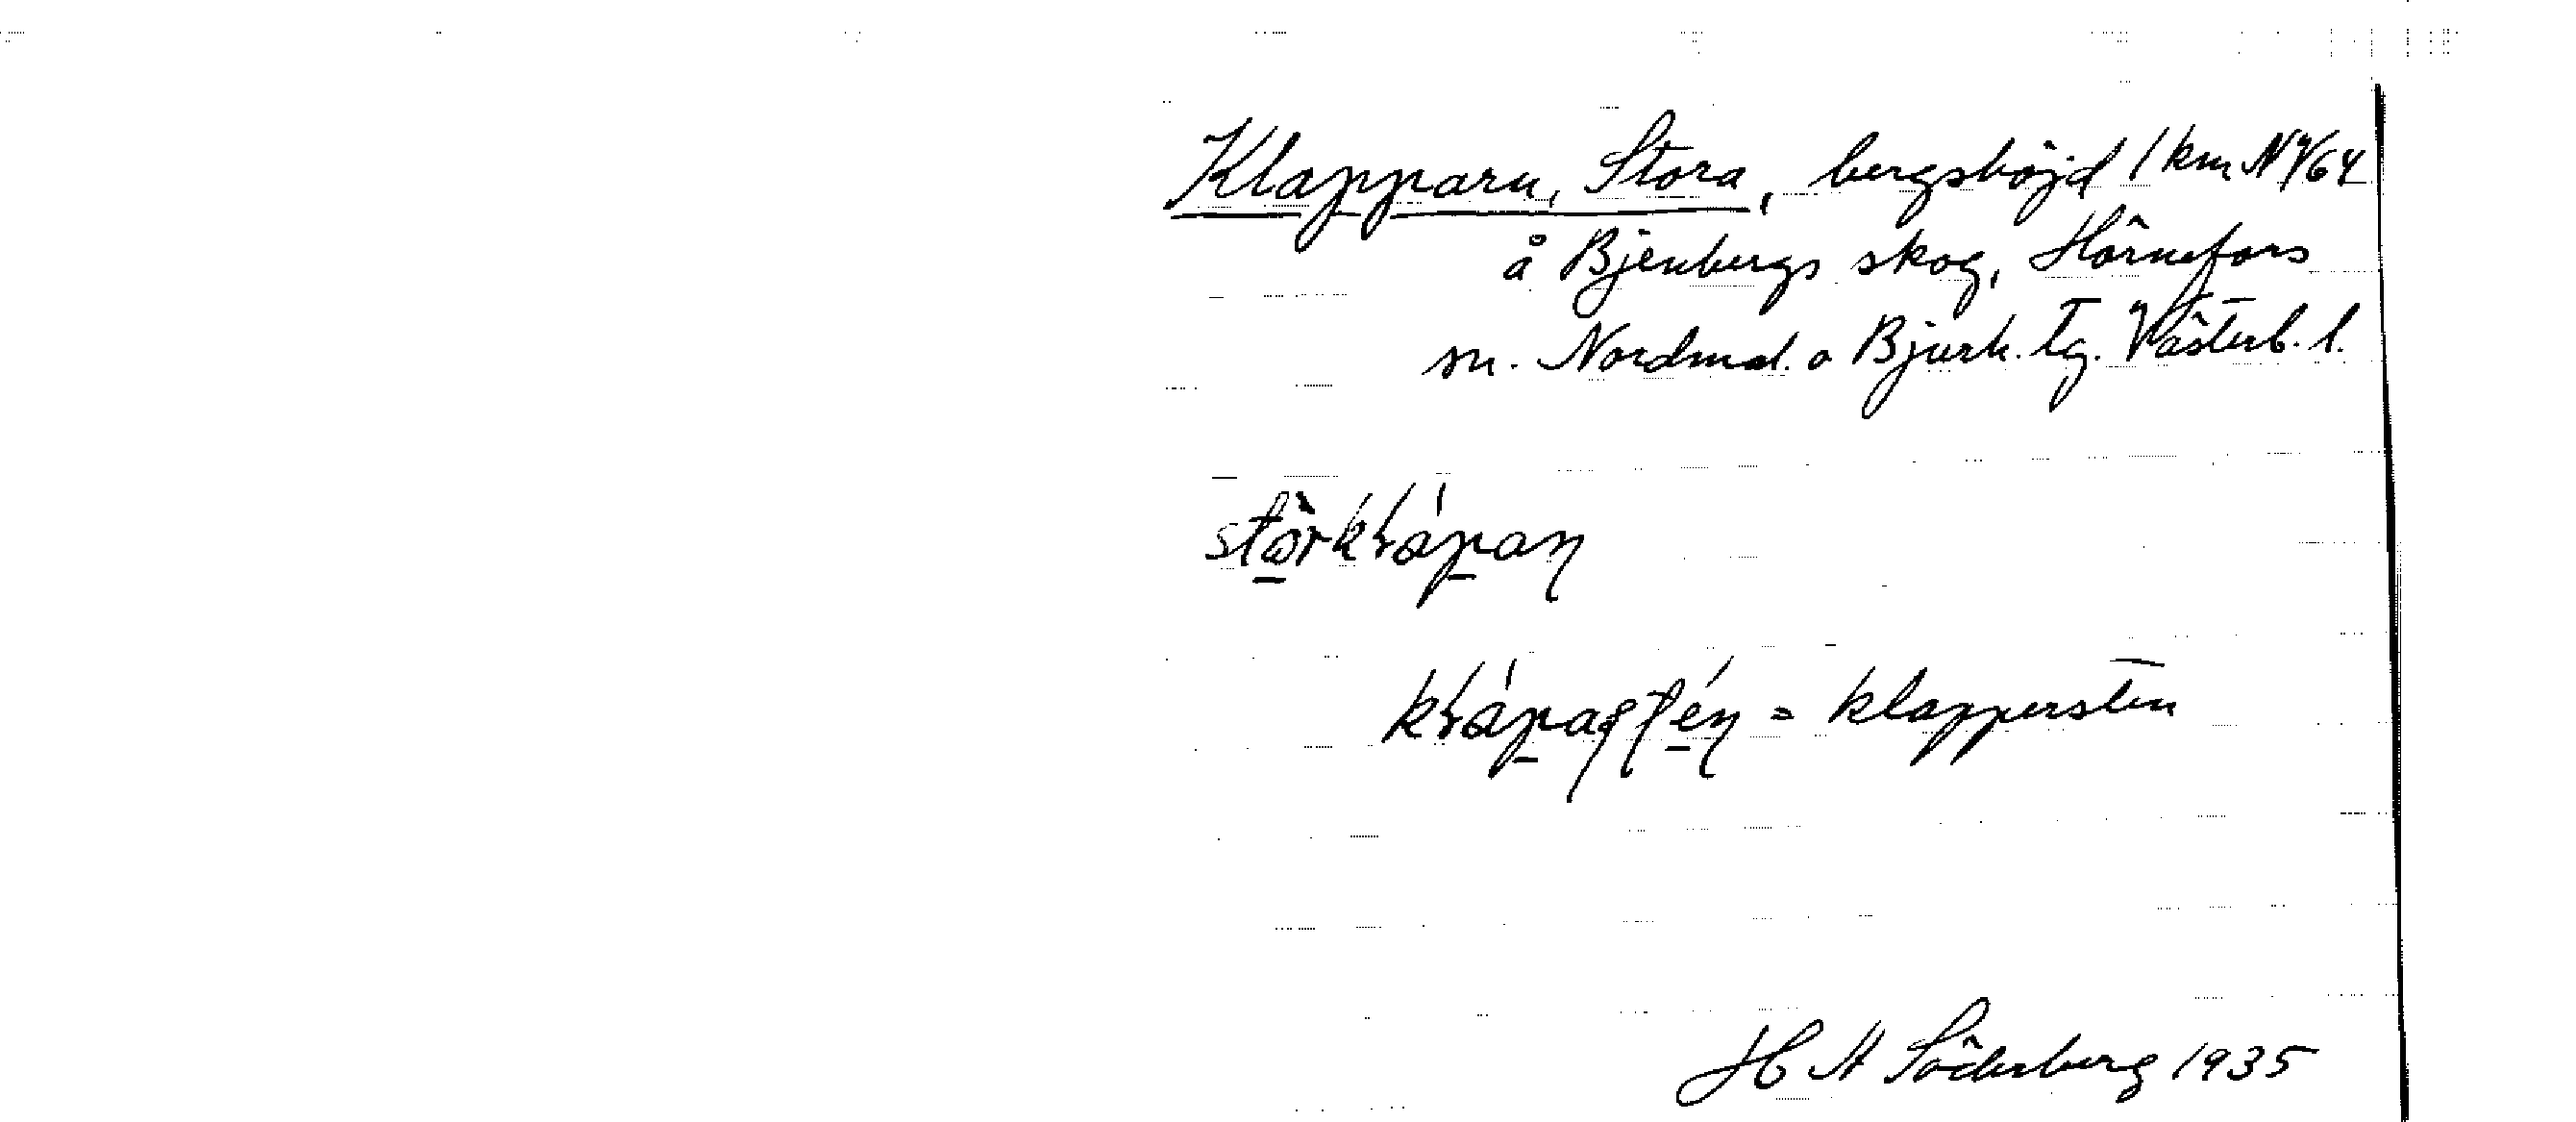 Klapparn, Stora, bergshöjd 1 km NV 64
å Bjenbergs skog, Hörnefors
sn. Nordmal. o Bjurh. Tg. Västerb. l.
stòrkɽápaɳ
kɽápaʂʈéɳ = klappersten
H A Söderberg 1935